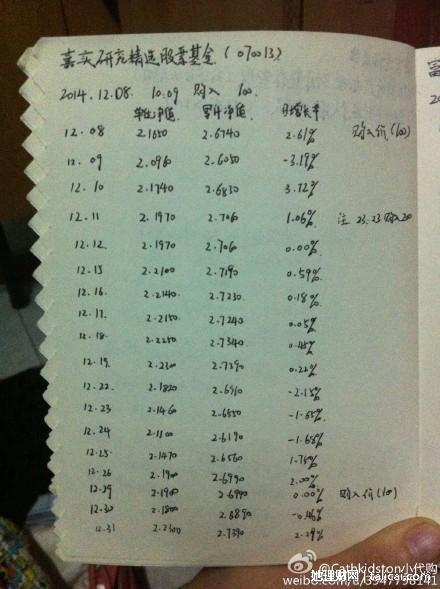 嘉实研究精选股票基金(070013)
2014.12.08. 10:09 购入 100.
单位净值 累计净值 日增长率
12.08 2.1650 2.6740 2.61% 购入价(100)
12.09 2.0960 2.6050 -3.19%
12.10 2.1740 2.6830 3.72%
12.11 2.1970 2.706 1.06% 注 23:23 购入20
12.12. 2.1970 2.706 0.00%
12.15 2.2100 2.7190 0.59%
12.16. 2.2140. 2.7230. 0.18%
12.17. 2.2150. 2.7240 0.05%
12.18. 2.2250 2.7340. 0.45%
12.19. 2.2300 2.7390 0.22%
12.22. 2.1820 2.6910 -2.15%
12.23 2.1460 2.6550 -1.65%
12.24 2.1100 2.6190 -1.68%
12.25. 2.1470 2.6560 1.75%
12.26 2.1900 2.6990 2.00%
12.29 2.1900 2.6990 0.00% 购入价(100)
12.30 2.1800 2.6890 -0.46%
12.31 2.2300 2.7390 2.29%
@Cathkidston小代购
地理财网 talicai.com